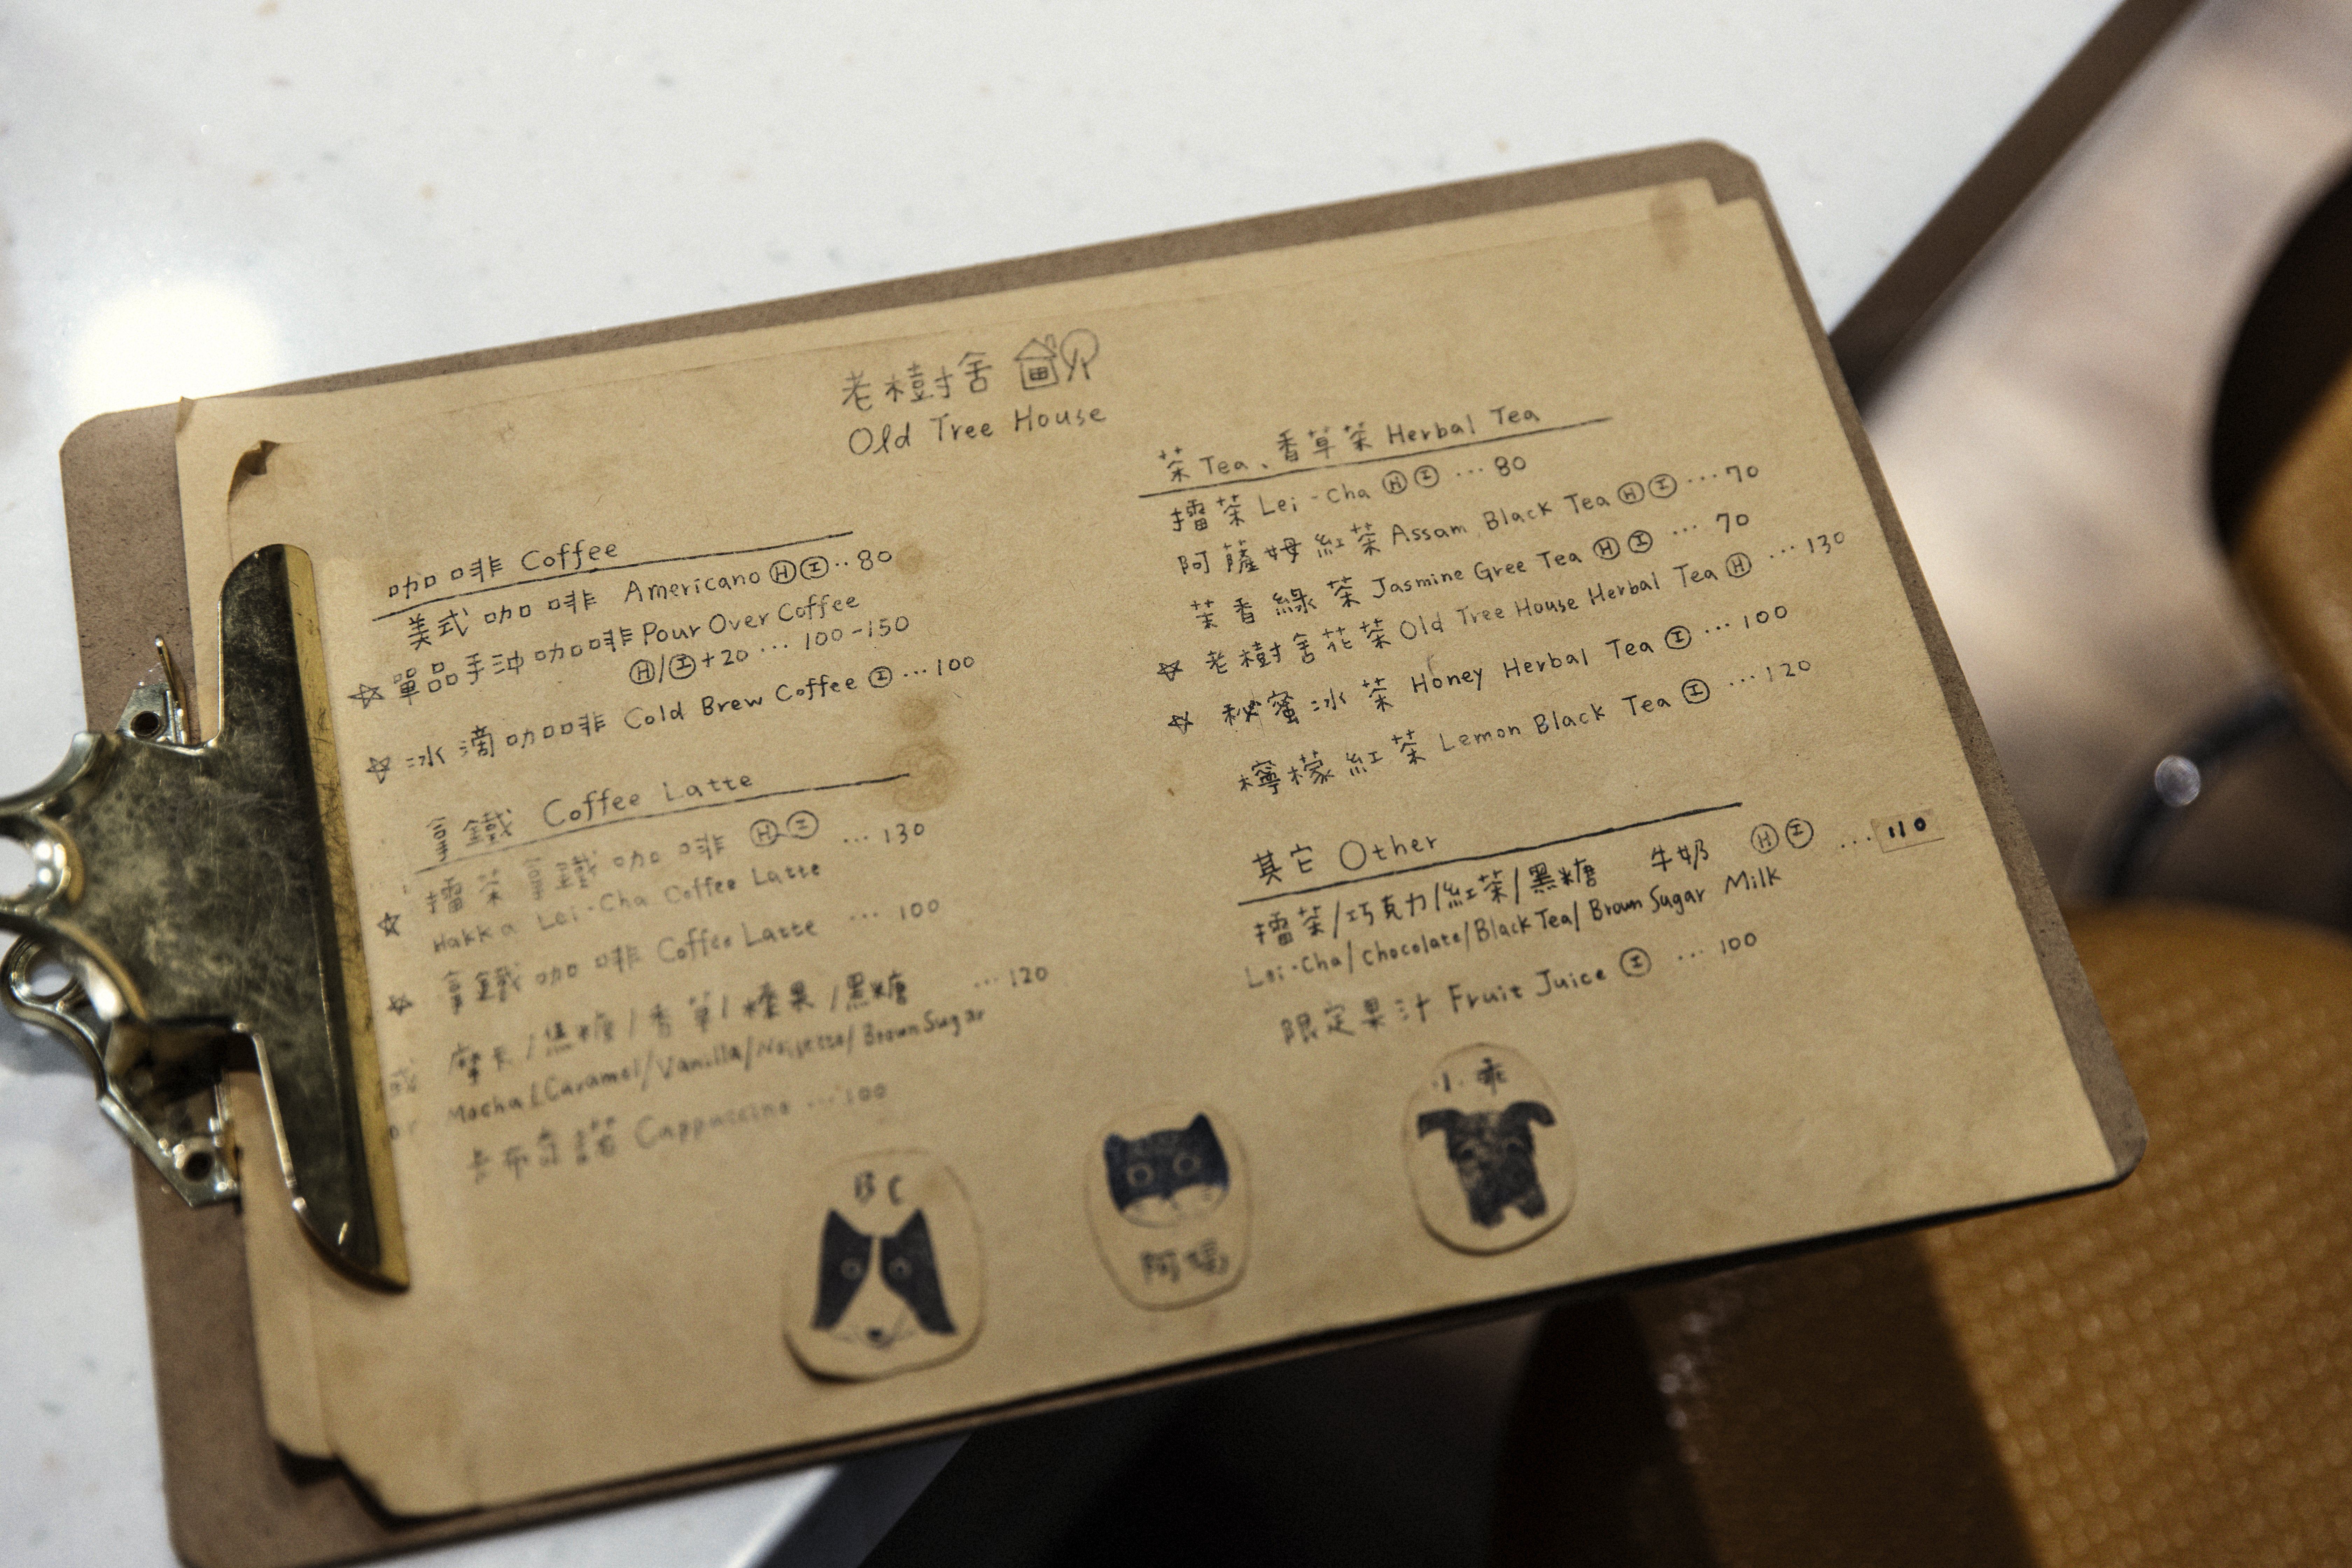 老樹舍
Old Tree House
咖啡 Coffee
美式咖啡 Americano Ⓗ Ⓘ ‥80
☆ 單品手沖咖啡 Pour Over Coffee
Ⓗ/Ⓘ+20 … 100-150
☆ 冰滴咖啡 Cold Brew Coffee Ⓘ …100
拿鐵 Coffee Latte
☆ 擂茶拿鐵咖啡 Ⓗ Ⓘ … 130
Hakka Lei-Cha Coffee Latte
☆ 拿鐵咖啡 Coffee Latte … 100
或 摩卡/焦糖/香草/榛果/黑糖 …120
or Mocha/Caramel/Vanilla/Noisette/Brown Sugar
卡布奇諾 Cappuccino …100
茶 Tea、香草茶 Herbal Tea
擂茶 Lei-Cha Ⓗ Ⓘ … 80
阿薩姆紅茶 Assam Black Tea Ⓗ Ⓘ …70
茉香綠茶 Jasmine Gree Tea Ⓗ Ⓘ … 70
☆ 老樹舍花茶 Old Tree House Herbal Tea Ⓗ …130
☆ 秘蜜冰茶 Honey Herbal Tea Ⓘ …100
檸檬紅茶 Lemon Black Tea Ⓘ …120
其它 Other
擂茶/巧克力/紅茶/黑糖 牛奶 Ⓗ Ⓘ …110
Lei-Cha/Chocolate/Black Tea/Brown Sugar Milk
限定果汁 Fruit Juice Ⓘ … 100
BC
小乖